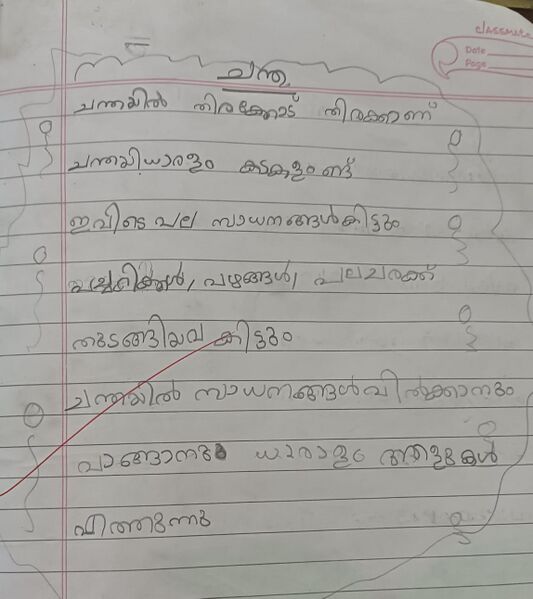 classmate
Date
Page
ചന്ത
ചന്തയിൽ തിരക്കോട് തിരക്കാണ്
ചന്തയിധാരളം കടകളുംണ്ട്
ഇവിടെ പല സാധനങ്ങൾകിട്ടും
പച്ചകറികൾ, പഴങ്ങൾ, പലചരക്ക്
തുടങ്ങിയവ കിട്ടും
ചന്തയിൽ സാധനങ്ങൾവിൽക്കാനും
വാങ്ങാനും ധാരാളം ആളുകൾ
എത്തുന്നു